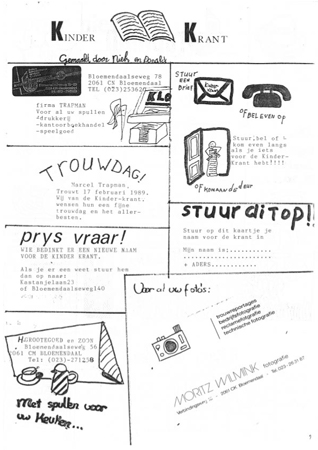 KINDER KRANT
Gemaakt door Niek en
Bloemendaalseweg 78
2061 CN Bloemendaal
TEL (023)253620
firma TRAPMAN
Voor al uw spullen
drukkerij
-kantoorboekhandel
-speelgoed
STUUR
EEN
BRIEF
OF BEL EVEN OP
Stuur, bel of
kom even langs
als je iets
voor de Kinder-
krant hebt!!!!
OF KOM AAN DE DEUR
TROUWDAG!
Marcel Trapman,
Trouwt 17 februari 1989.
Wij van de Kinder-krant.
wensen hun een fijne
trouwdag en het aller-
besten,
stuur dit op!!
Stuur op dit kaartje je
naam voor de krant in
Mijn naam is:..........
+ ADERS..........
prys vraar!
WIE BEDINKT ER EEN NIEUWE NAAM
VOOR DE KINDER KRANT,
Als je er een weet stuur hem
dan op naar:
Kastanjelaan23
of Bloemendaalseweg140
Voor al uw foto's:
trouwreportages
bedrijfsfotografie
reclamefotografie
technische fotografie
MORITZ WILMINK fotografie
2061 CK Bloemendaal
HGROOTEGOED en ZOON
Bloemendaalseweg 36
2061 CM BLOEMENDAAL
Tel: (023)-271258
Met spullen voor
uw keuken...